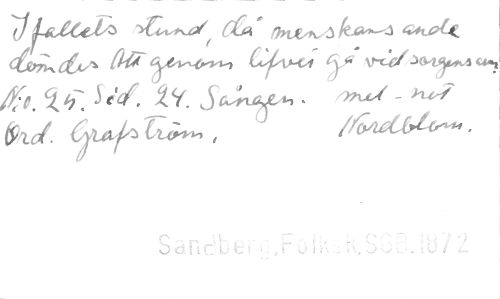 I fallets stund, då menskans ande
dömdes Att genom lifvet gå vid sorgens arm,
No. 25. Sid. 24. Sången. mel-not
Ord. Grafström. Nordblom.
Sandberg,Folksk.SGB.1872